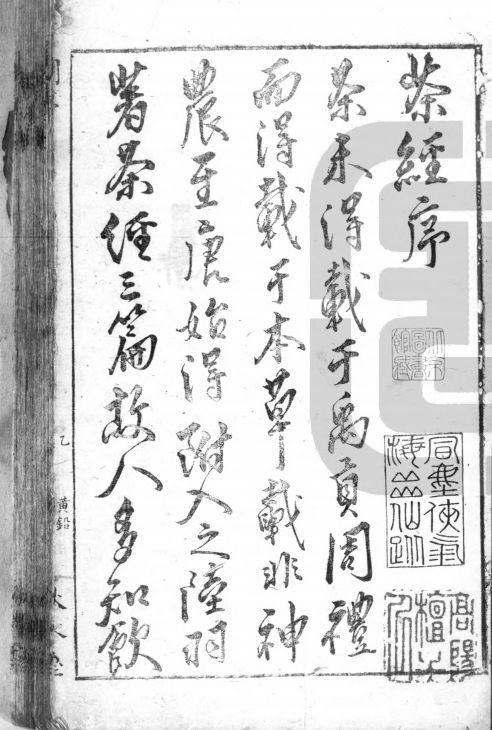 茶經序
茶未得載于禹貢周禮
而得載于本草載非神
農至唐始得附入之陸羽
著茶經三篇故人多知飲
黃鉛